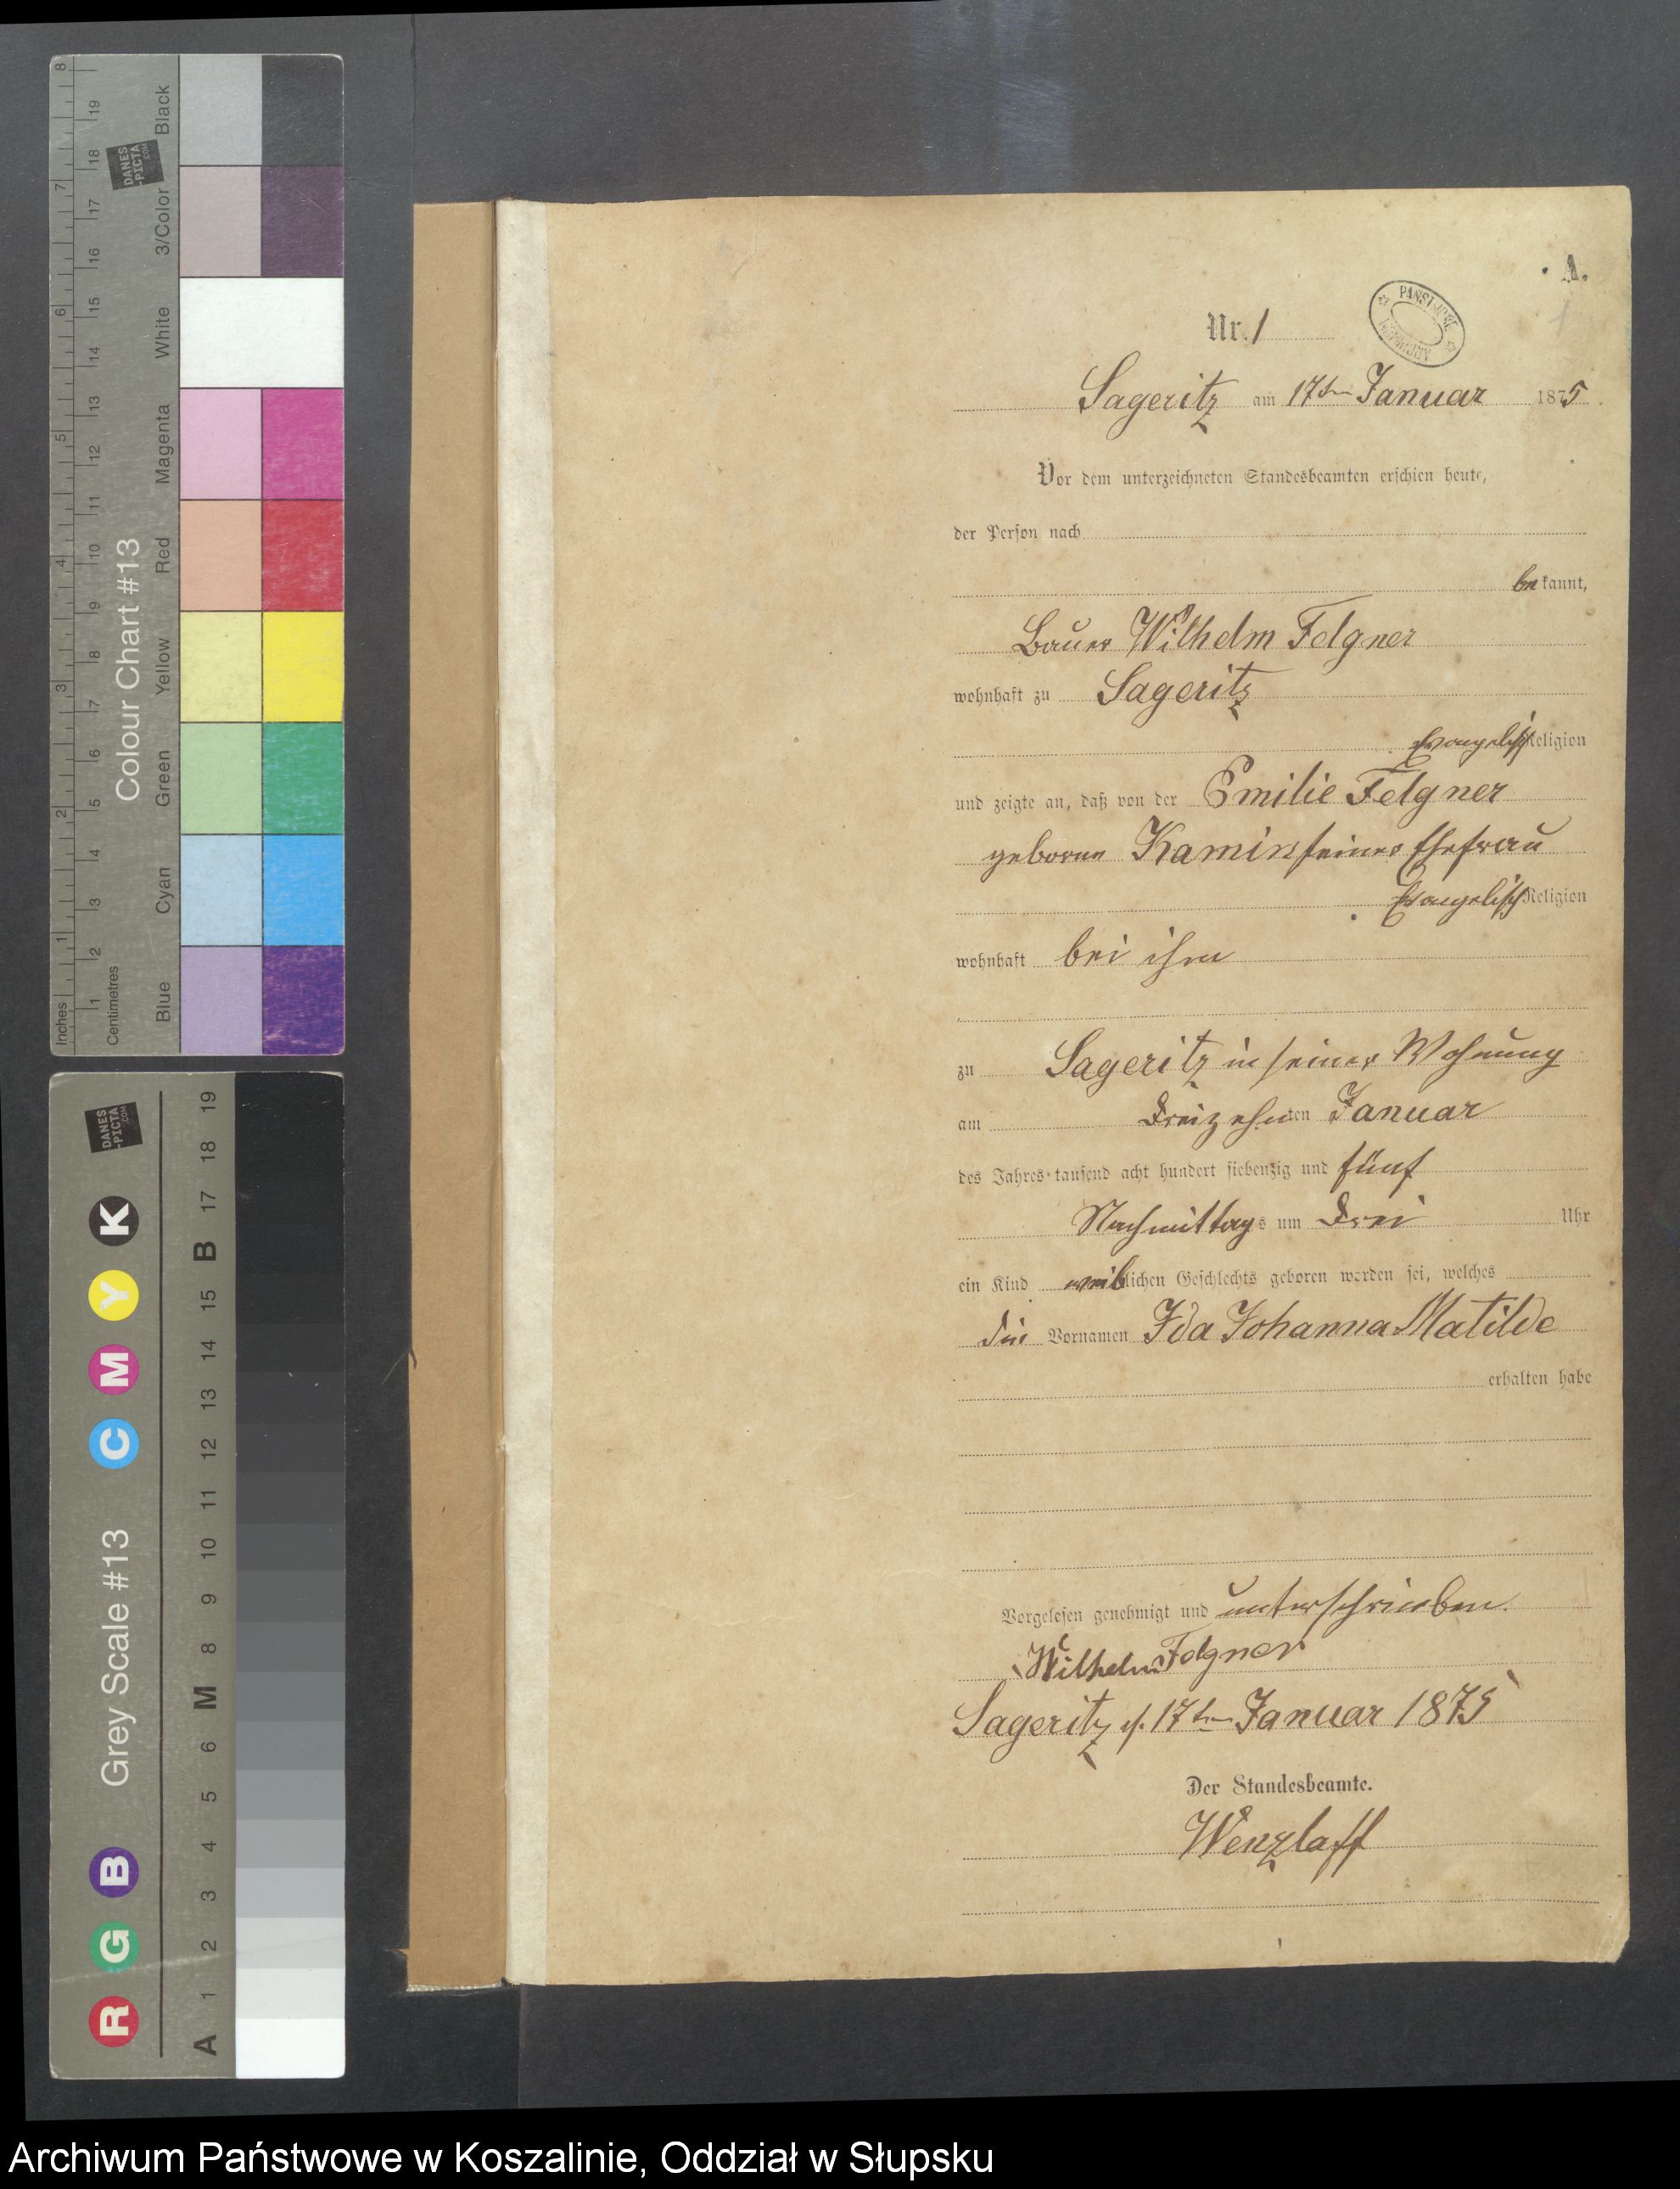 A.
Nr. 1
Sageritz am 17ten Januar 1875
Vor dem unterzeichneten Standesbeamten erschien heute,
der Person nach
bekannt,
Bauer Wilhelm Felgner
wohnhaft zu Sageritz
Evangelisch Religion
und zeigte an, daß von der Emilie Felgner
geborne Kamin seiner Ehefrau
Evangelisch Religion
wohnhaft bei ihm
zu Sageritz in seiner Wohnung
am Dreizehnten Januar
des Jahres tausend acht hundert siebenzig und fünf
Nachmittags um Drei Uhr
ein Kind weiblichen Geschlechts geboren worden sei, welches
die Vornamen Ida Johanna Matilde
erhalten habe
Vorgelesen genehmigt und unterschrieben.
Wilhelm Felgner
Sageritz d. 17ten Januar 1875
Der Standesbeamte.
Wenzlaff
Colour Chart #13
Inches 1 2 3 4 5 6 7 8
Centimetres 1 2 3 4 5 6 7 8 9 10 11 12 13 14 15 16 17 18 19
Blue Cyan Green Yellow Red Magenta White 3/Color Black
DANES
-PICTA
.COM
Grey Scale #13
R G B C M Y K
A 1 2 3 4 5 6 M 8 9 10 11 12 13 14 15 B 17 18 19
DANES
-PICTA
.COM
Archiwum Państwowe w Koszalinie, Oddział w Słupsku